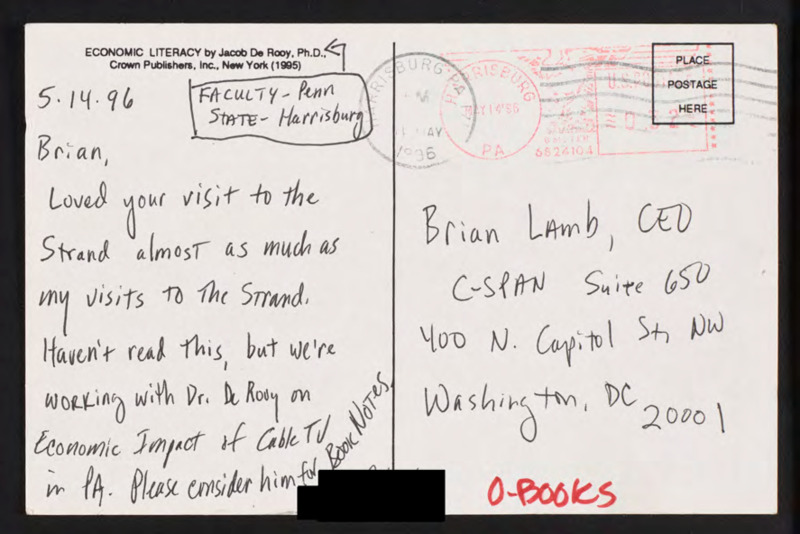 ECONOMIC LITERACY by Jacob De Rooy, Ph.D.,
Crown Publishers, Inc., New York (1995)
5.14.96
FACULTY - Penn
STATE - Harrisburg
Brian,
Loved your visit to the
Strand almost as much as
my visits to The Strand.
Haven't read this, but we're
working with Dr. De Rooy on
Economic Impact of Cable TV
in PA. Please consider him for Book Notes.
HARRISBURG PA
PM
MAY
1996
HARRISBURG
MAY 14'96
PA
U.S. POSTAGE
6824104
PLACE
POSTAGE
HERE
Brian Lamb, CEO
C-SPAN Suite 650
400 N. Capitol St, NW
Washington, DC
20001
O-BOOKS